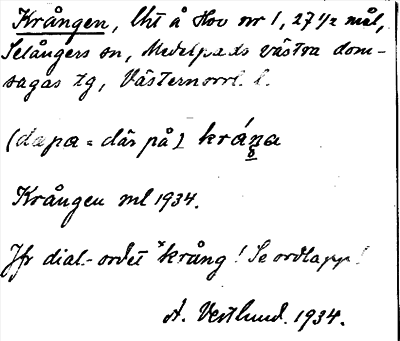 Krången, Lht å Hov nr 1, 27 1/2 mål,
Selångers sn, Medelpads västra dom-
sagas tg, Västernorrl. l.
(dapa = där på) kráŋa
Krången ml 1934.
Jfr dial-ordet *krång! Se ordlapp!
A. Vestlund. 1934.